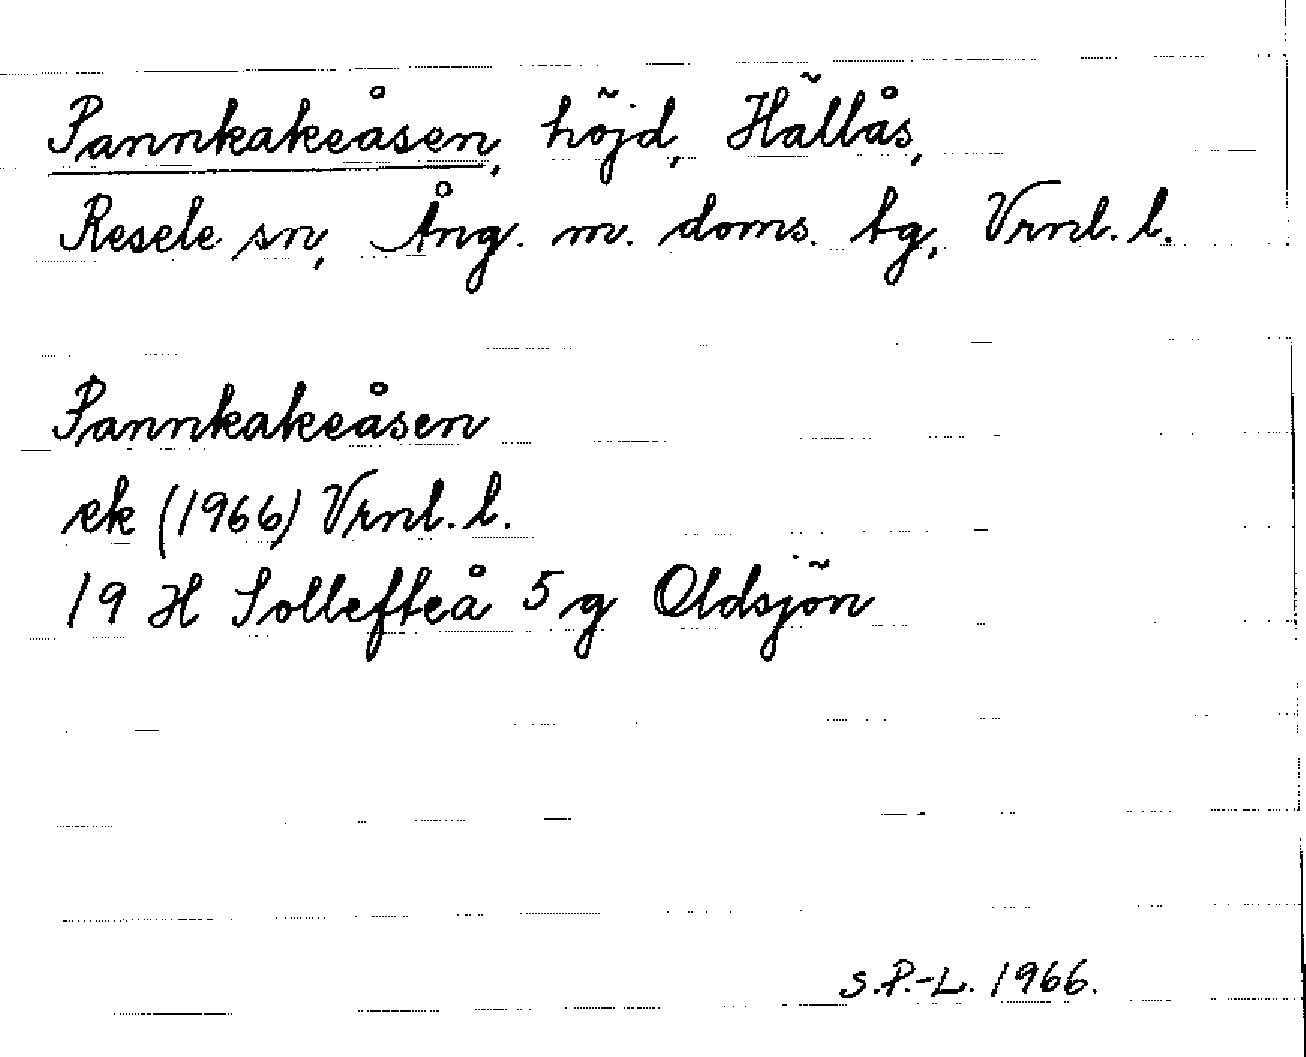 Pannkakeåsen, höjd, Hällås,
Resele sn, Ång. m. doms. tg, Vrnl. l.
Pannkakeåsen
ek (1966) Vrnl. l.
19 H Sollefteå 5 g Oldsjön
S.P.-L. 1966.